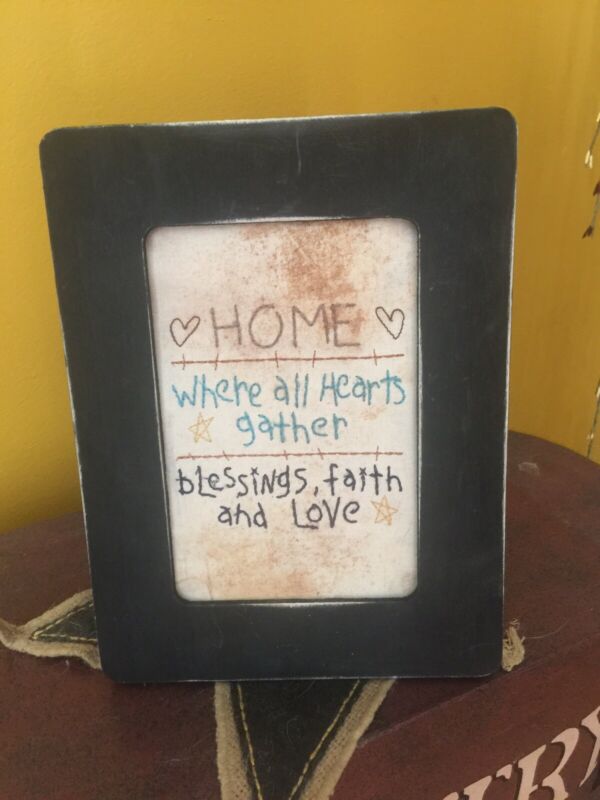 HOME
where all Hearts
gather
blessings, faith
and Love